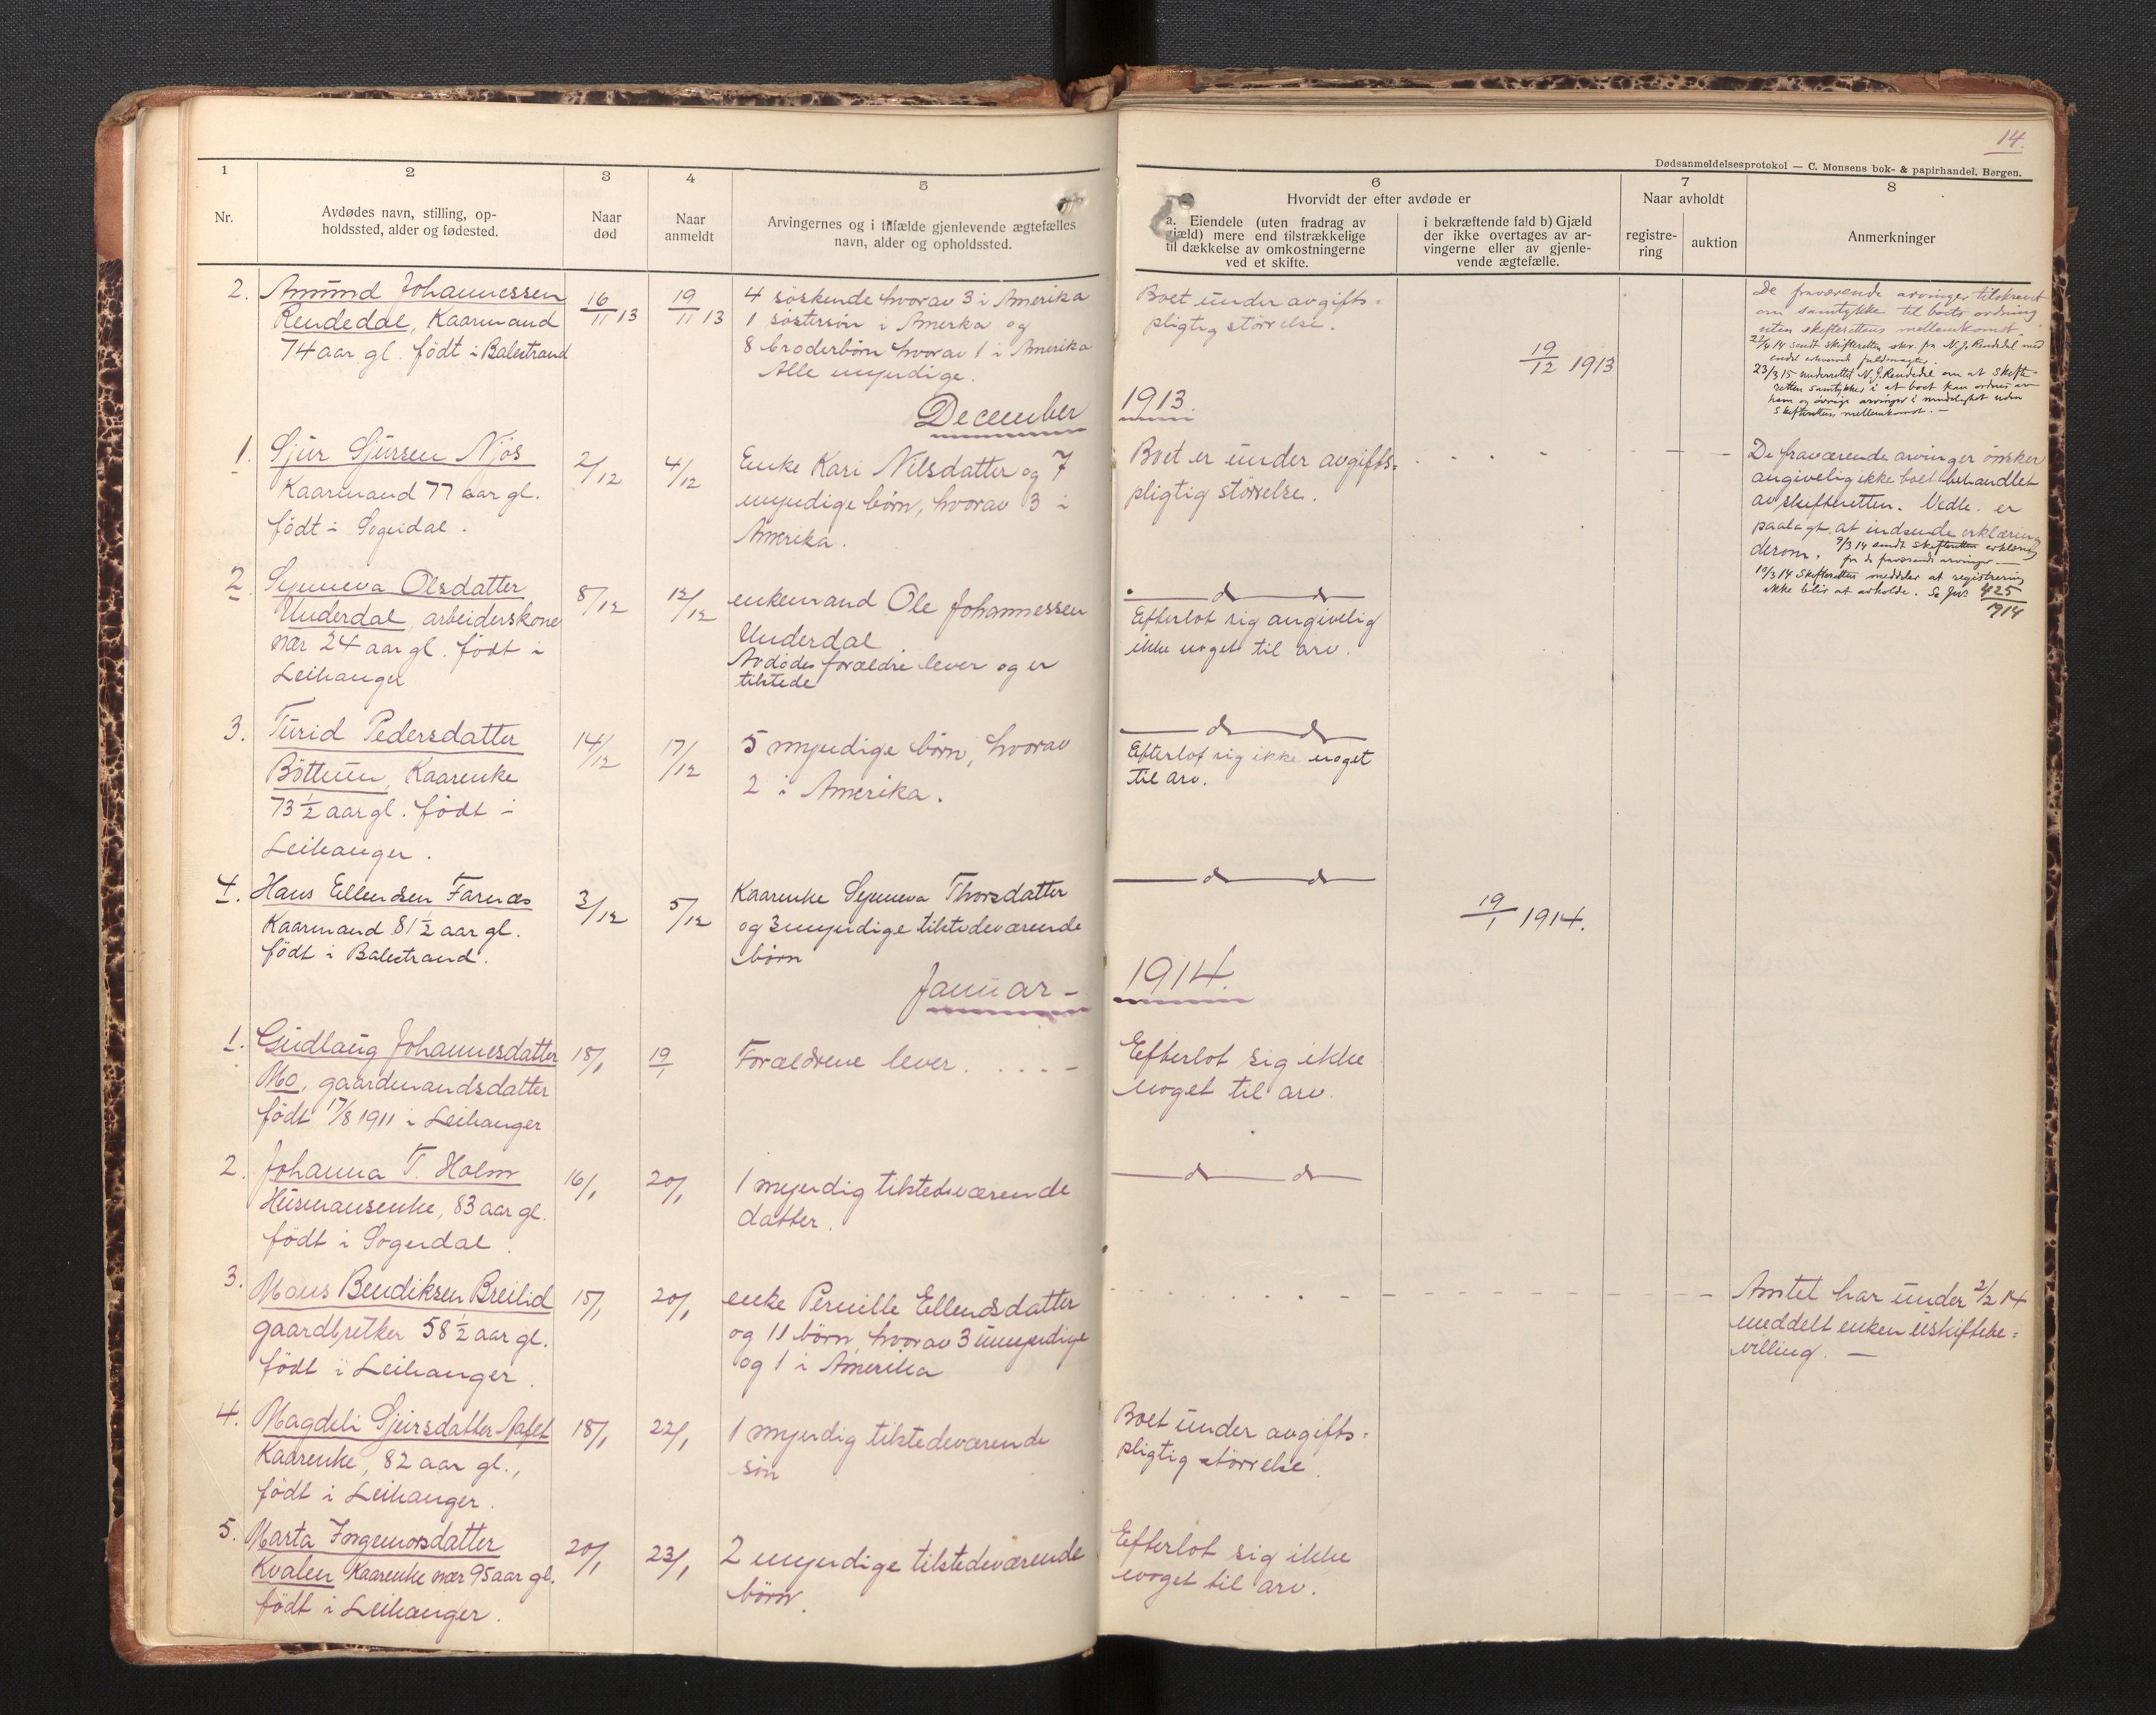 14.
Dødsanmeldelsesprotokol — C. Monsens bok- & papirhandel, Bergen.
1
Nr.
2
Avdødes navn, stilling, op-
holdssted, alder og fødested.
3
Naar
død
4
Naar
anmeldt
5
Arvingernes og i tilfælde gjenlevende ægtefælles
navn, alder og opholdssted.
6
Hvorvidt der efter avdøde er
a. Eiendele (uten fradrag av
gjæld) mere end tilstrækkelige
til dækkelse av omkostningerne
ved et skifte.
i bekræftende fald b) Gjæld
der ikke overtages av ar-
vingerne eller av gjenle-
vende ægtefælle.
7
Naar avholdt
registre-
ring
auktion
8
Anmerkninger
2.
Amund Johannessen
Rendedal, Kaarmand
74 aar gl. födt i Balestrand
16/11 13
19/11 13
4 söskende hvorav 3 i Amerika
1 söstersön i Amerika og
8 broderbörn hvorav 1 i Amerika
Alle myndige.
Boet under avgifts=
pligtig störrelse.
19/12 1913
De fraværende arvinger tilskrevet
om samtykke til boets ordning
uten skifterettens mellemkomst.
22/4 14 sendt skifteretten skr. fra N. J. Rendedal med
endel erhvervede fuldmagter.
23/3 15 underrettet N. J. Rendedal om at skifte-
retten samtykker i at boet kan ordnes av
ham og övrige arvinger i mindelighet uden
skifterettens mellemkomst. —
December
1913.
1.
Sjur Sjursen Njös
Kaarmand 77 aar gl.
födt i Sogndal.
2/12
4/12
Enke Kari Nilsdatter og 7
myndige börn, hvorav 3 i
Amerika.
Boet er under avgifts=
pligtig störrelse.
De fraværende arvinger önsker
angivelig ikke boet behandlet
av skifteretten. Vedk. er
paalagt at indsende erklæring
derom. 9/3 14 sendt skifteretten erklæring
fra de fraværende arvinger. —
10/3 14 Skifteretten meddeler at registrering
ikke blir at avholde. Se Jnr. 425/1914
2.
Synneva Olsdatter
Underdal, arbeiderskone
nær 24 aar gl. födt i
Leikanger
8/12
12/12
enkemand Ole Johannessen
Underdal
Avdödes forældre lever og er
tilstede
— d — d —
Efterlot sig angivelig
ikke noget til arv.
3.
Turid Pedersdatter
Böttun, Kaarenke
73 1/2 aar gl. födt i
Leikanger.
14/12
17/12
5 myndige börn, hvorav
2 i Amerika.
— d — d —
Efterlot sig ikke noget
til arv.
4.
Hans Ellendsen Farnæs
Kaarmand 81 1/2 aar gl.
födt i Balestrand.
3/12
5/12
Kaarenke Synneva Thorsdatter
og 3 myndige tilstedeværende
börn
— d — d —
19/1 1914.
Januar -
1914.
1.
Gudlaug Johannesdatter
Mo, gaardmandsdatter
födt 17/8 1911 i Leikanger
18/1
19/1
Forældrene lever.
Efterlot sig ikke
noget til arv.
2.
Johanna T. Holm
Husmansenke, 83 aar gl.
födt i Sogndal.
16/1
20/1
1 myndig tilstedeværende
datter.
— d — d —
3.
Mons Bendiksen Breilid
gaardbruker 58 1/2 aar gl.
födt i Leikanger.
15/1
20/1
enke Pernille Ellendsdatter
og 11 börn, hvorav 3 umyndige
og 1 i Amerika
Amtet har under 2/2 14
meddelt enken uskiftebe=
villing. —
4.
Magdeli Sjursdatter
Kaarenke, 82 aar gl.,
födt i Leikanger.
18/1
22/1
1 myndig tilstedeværende
sön
Boet under avgifts=
pligtig störrelse.
5.
Marta Ingemorsdatter
Kvalen Kaarenke nær 95 aar gl.
födt i Leikanger.
20/1
23/1
2 myndige tilstedeværende
börn.
Efterlot sig ikke
noget til arv.